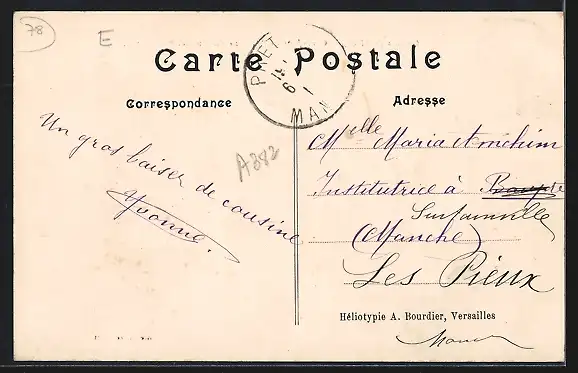 78
E
Carte Postale
Correspondance
Adresse
MAN
Un gros baiser de cousine
Yvonne.
A382
Mlle Maria
Institutrice à
Surtainville
(Manche)
Les Pieux
Héliotypie A. Bourdier, Versailles